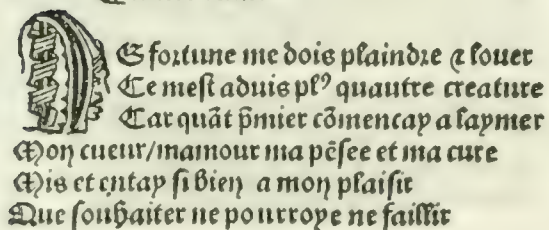 DE fortune me dois plaindre ⁊ louer
Ce mest aduis plꝰ quautre creature
Car quãt p̃mier cõmencay a laymer
Mon cueur/mamour ma pẽsee et ma cure
Mis et entay si bien a mon plaisir
Que souhaiter ne pourroye ne faillir